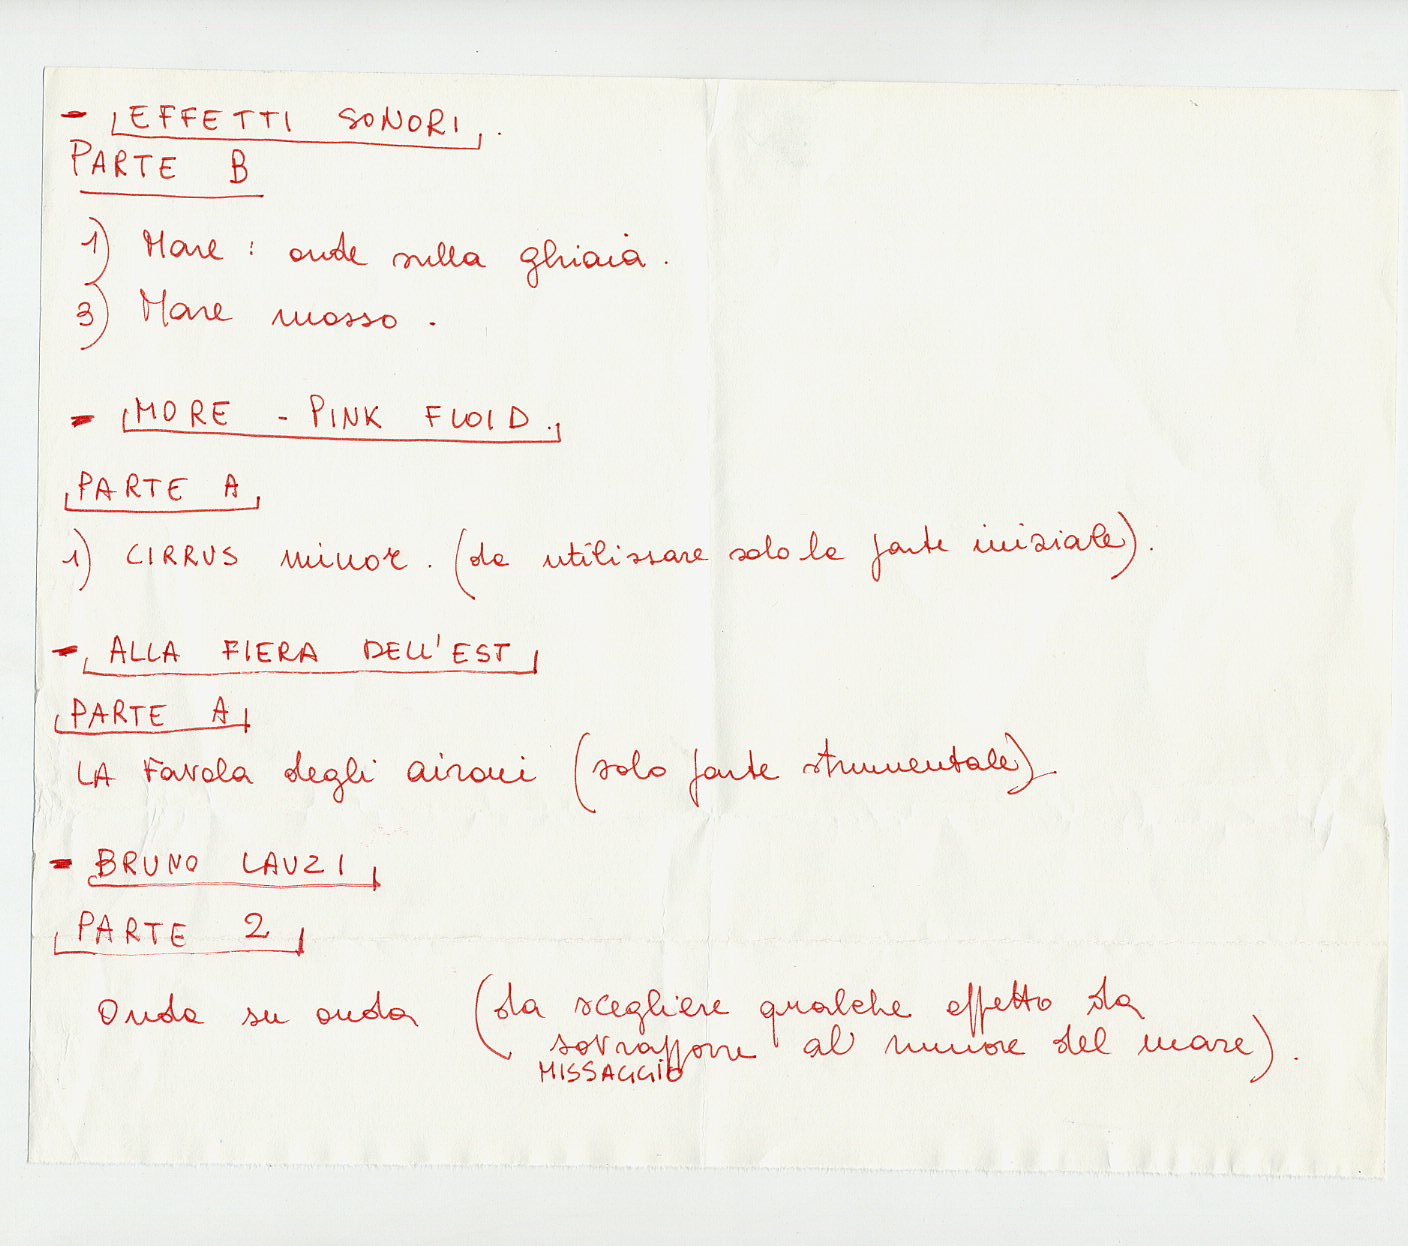 - EFFETTI SONORI.
PARTE B
1) Mare : onde sulla ghiaia.
3) Mare mosso.
- MORE - PINK FLOID.
PARTE A
1) CIRRUS minor. (da utilizzare solo la parte iniziale).
- ALLA FIERA DELL'EST
PARTE A
LA Favola degli aironi (solo parte strumentale).
- BRUNO LAUZI
PARTE 2
Onda su onda (da scegliere qualche effetto da
sovrapporre al rumore del mare).
MISSAGGIO